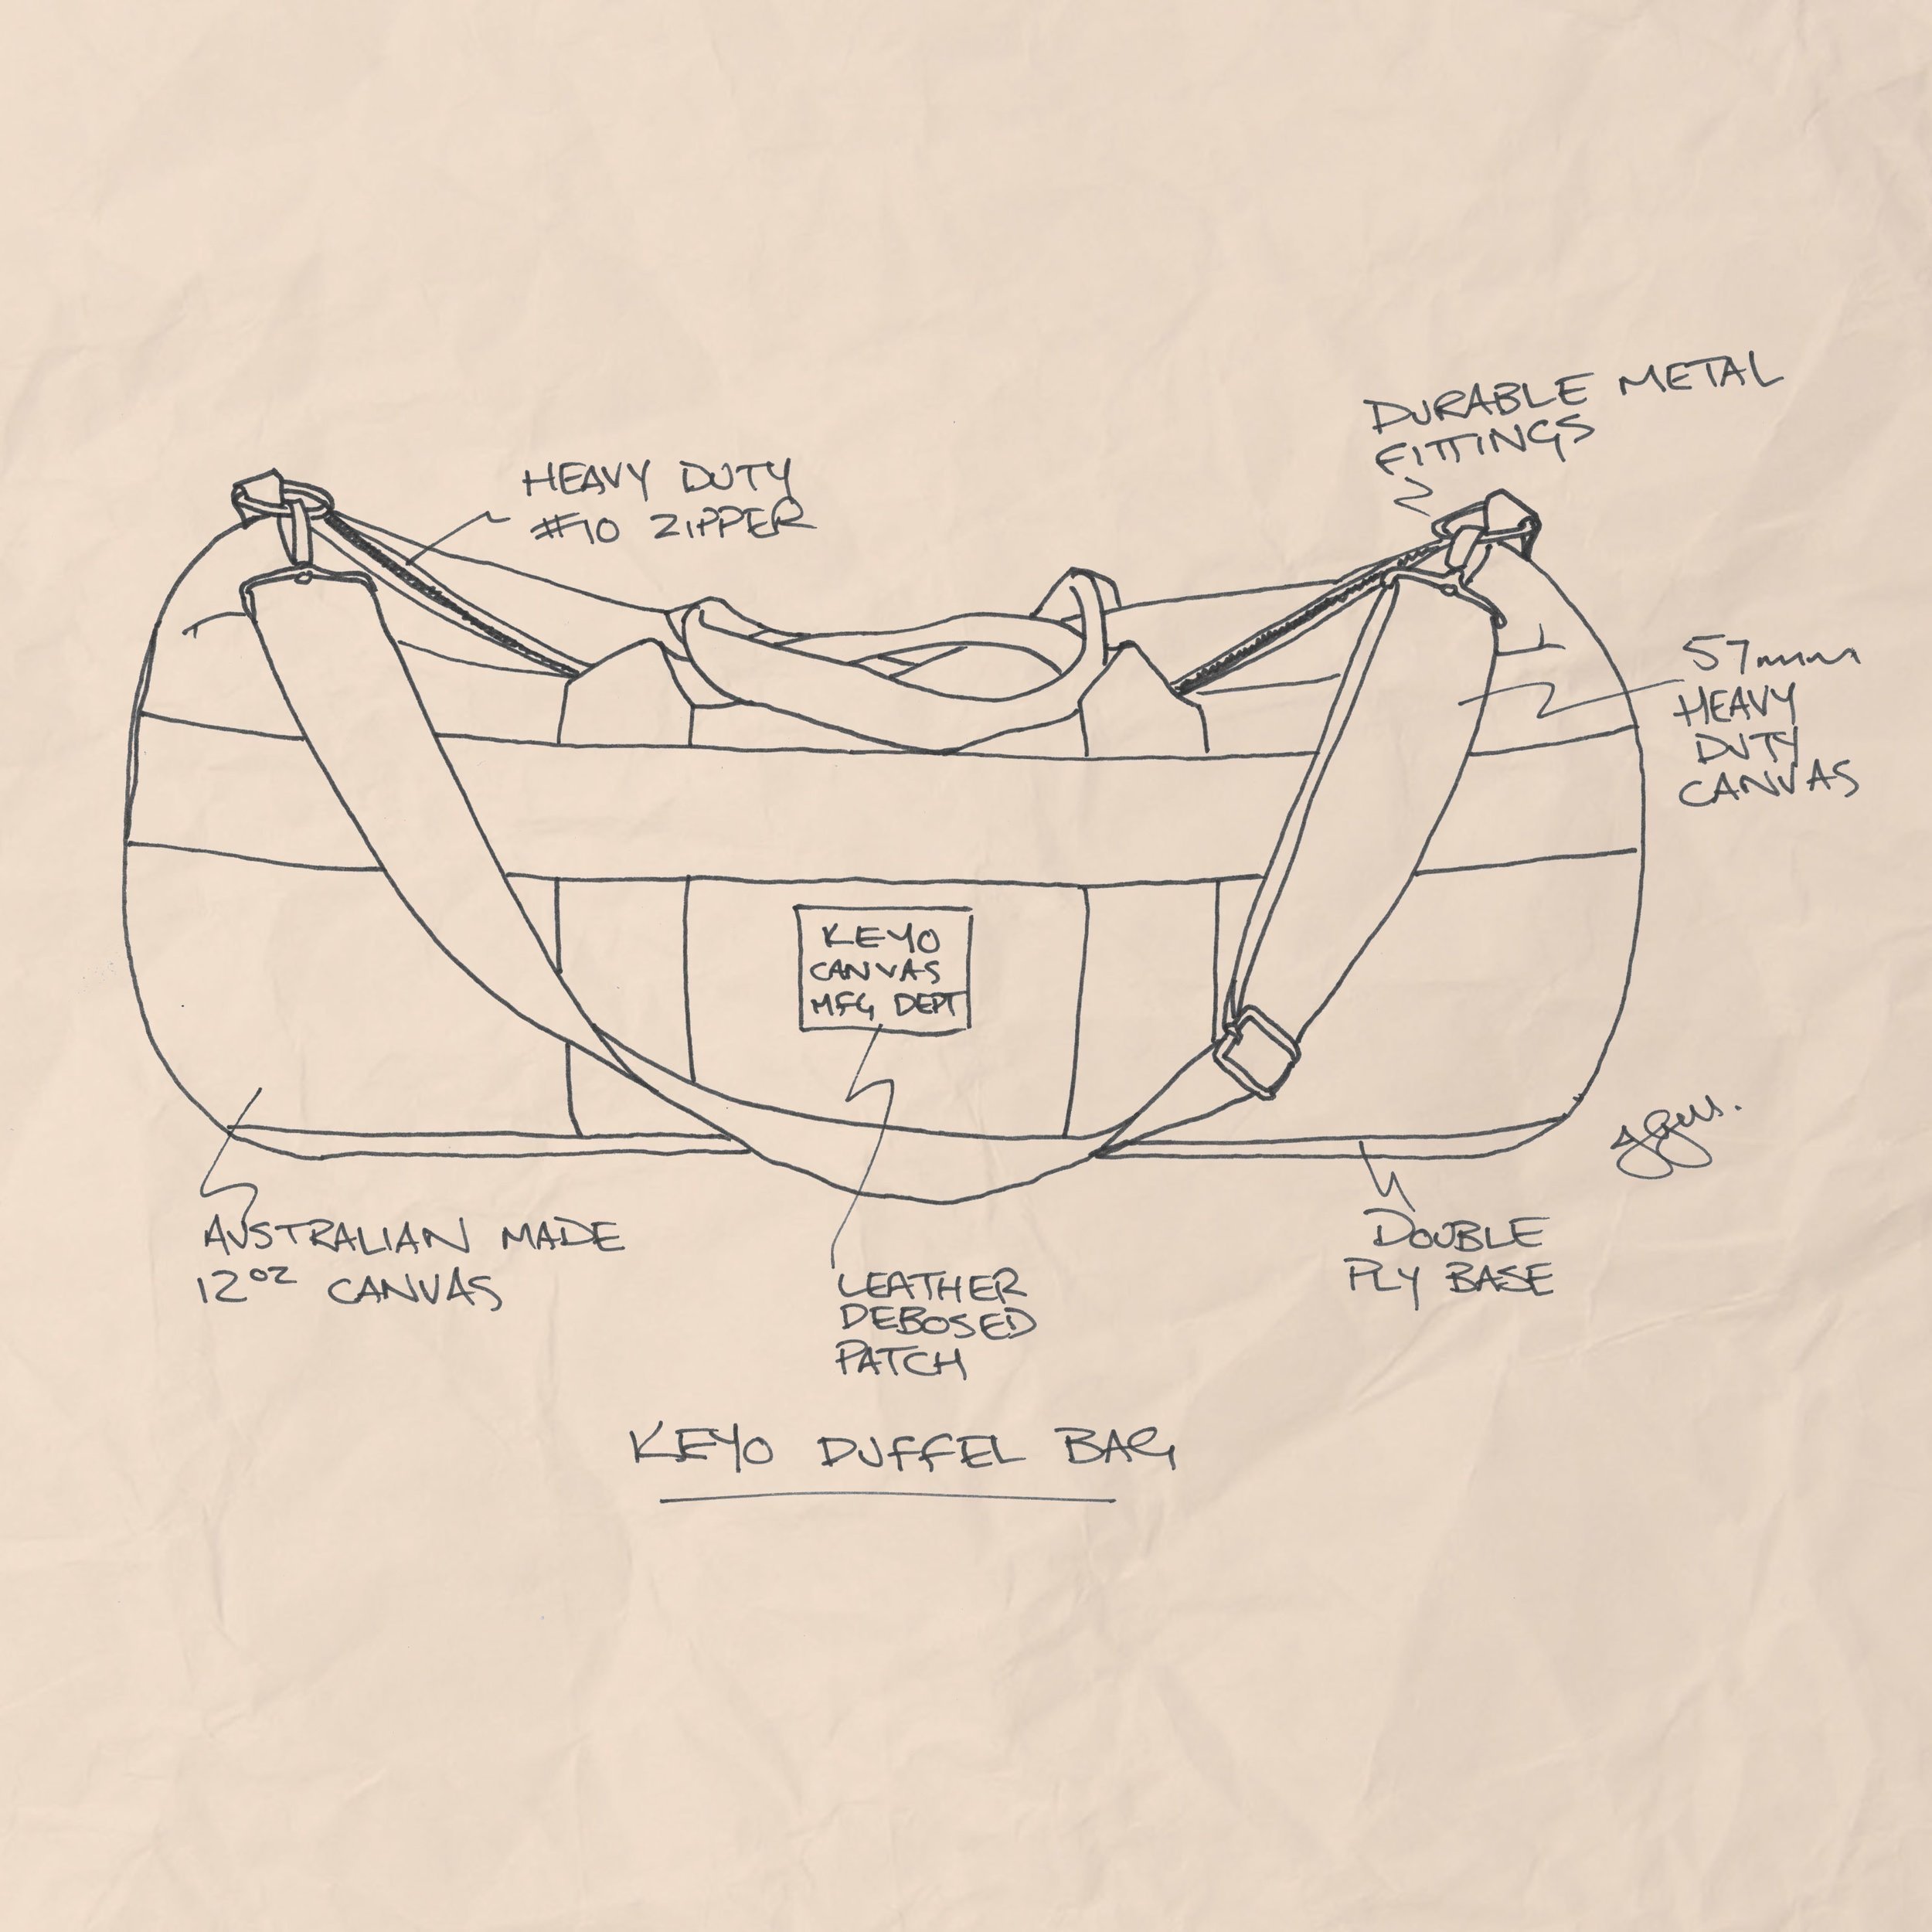 DURABLE METAL
FITTINGS
HEAVY DUTY
#10 ZIPPER
57mm
HEAVY
DUTY
CANVAS
KEYO
CANVAS
MFG DEPT
AUSTRALIAN MADE
12oz CANVAS
LEATHER
DEBOSED
PATCH
DOUBLE
PLY BASE
KEYO DUFFEL BAG